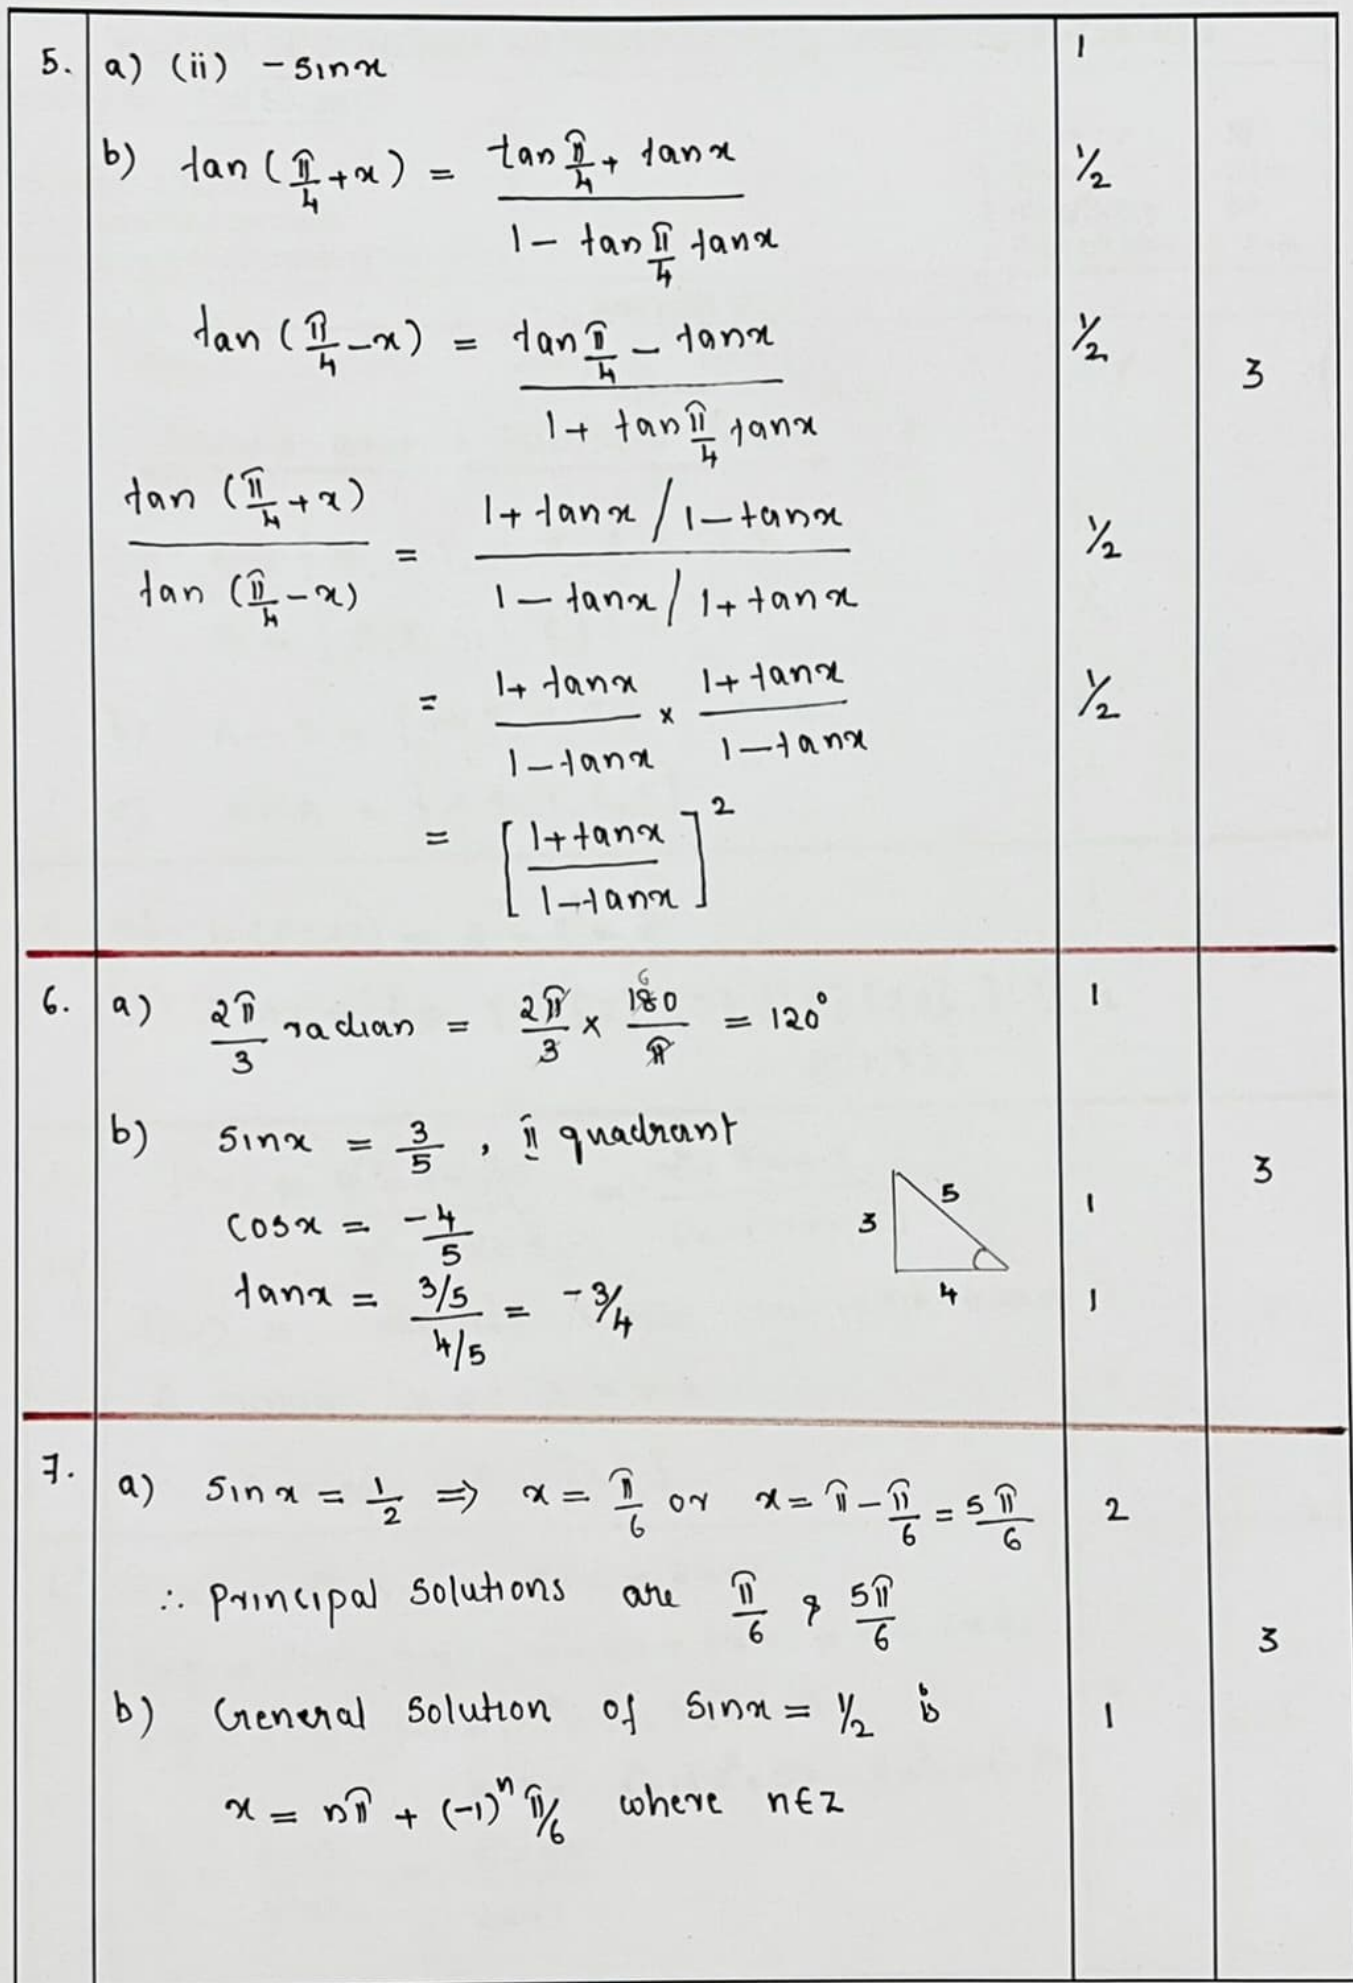 5. a) (ii) - sinx 1
b) tan (π/4 + x) = (tan π/4 + tanx) / (1 - tan π/4 tanx) 1/2
tan (π/4 - x) = (tan π/4 - tanx) / (1 + tan π/4 tanx) 1/2 3
tan (π/4 + x) / tan (π/4 - x) = (1 + tanx / 1 - tanx) / (1 - tanx / 1 + tanx) 1/2
= (1 + tanx)/(1 - tanx) × (1 + tanx)/(1 - tanx) 1/2
= [(1 + tanx)/(1 - tanx)]²
6. a) 2π/3 radian = 2π/3 × 180/π = 120° 1
6
b) sinx = 3/5 , II quadrant 3
cosx = -4/5 1
tanx = (3/5)/(4/5) = -3/4 1
5
3
4
7. a) sinx = 1/2 ⇒ x = π/6 or x = π - π/6 = 5π/6 2
∴ Principal solutions are π/6 & 5π/6 3
b) General solution of sinx = 1/2 is 1
x = nπ + (-1)ⁿ π/6 where n∈Z